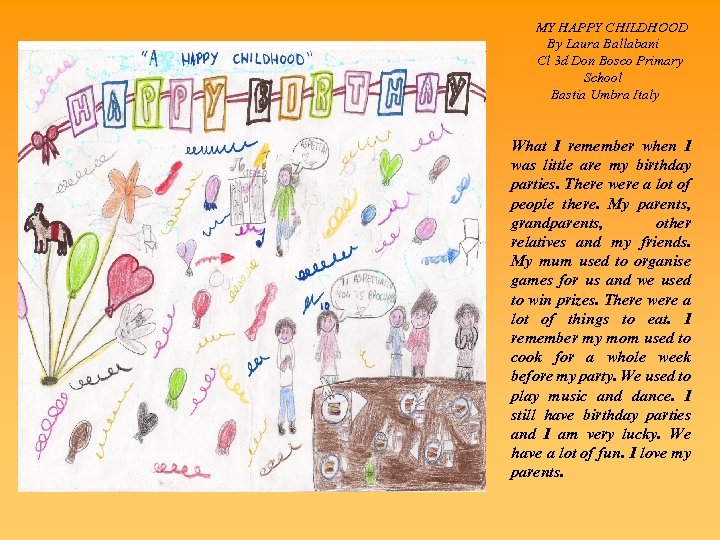 MY HAPPY CHILDHOOD
By Laura Ballabani
Cl 3d Don Bosco Primary
School
Bastia Umbra Italy
"A HAPPY CHILDHOOD"
HAPPY BIRTHAY
ASPETTA
TI ASPETTIAMO
NON TI
What I remember when I
was little are my birthday
parties. There were a lot of
people there. My parents,
grandparents, other
relatives and my friends.
My mum used to organise
games for us and we used
to win prizes. There were a
lot of things to eat. I
remember my mom used to
cook for a whole week
before my party. We used to
play music and dance. I
still have birthday parties
and I am very lucky. We
have a lot of fun. I love my
parents.